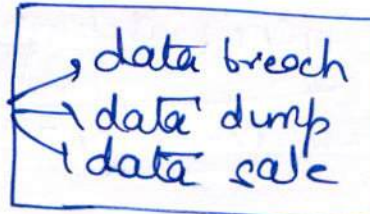 data breach
data dump
data sale